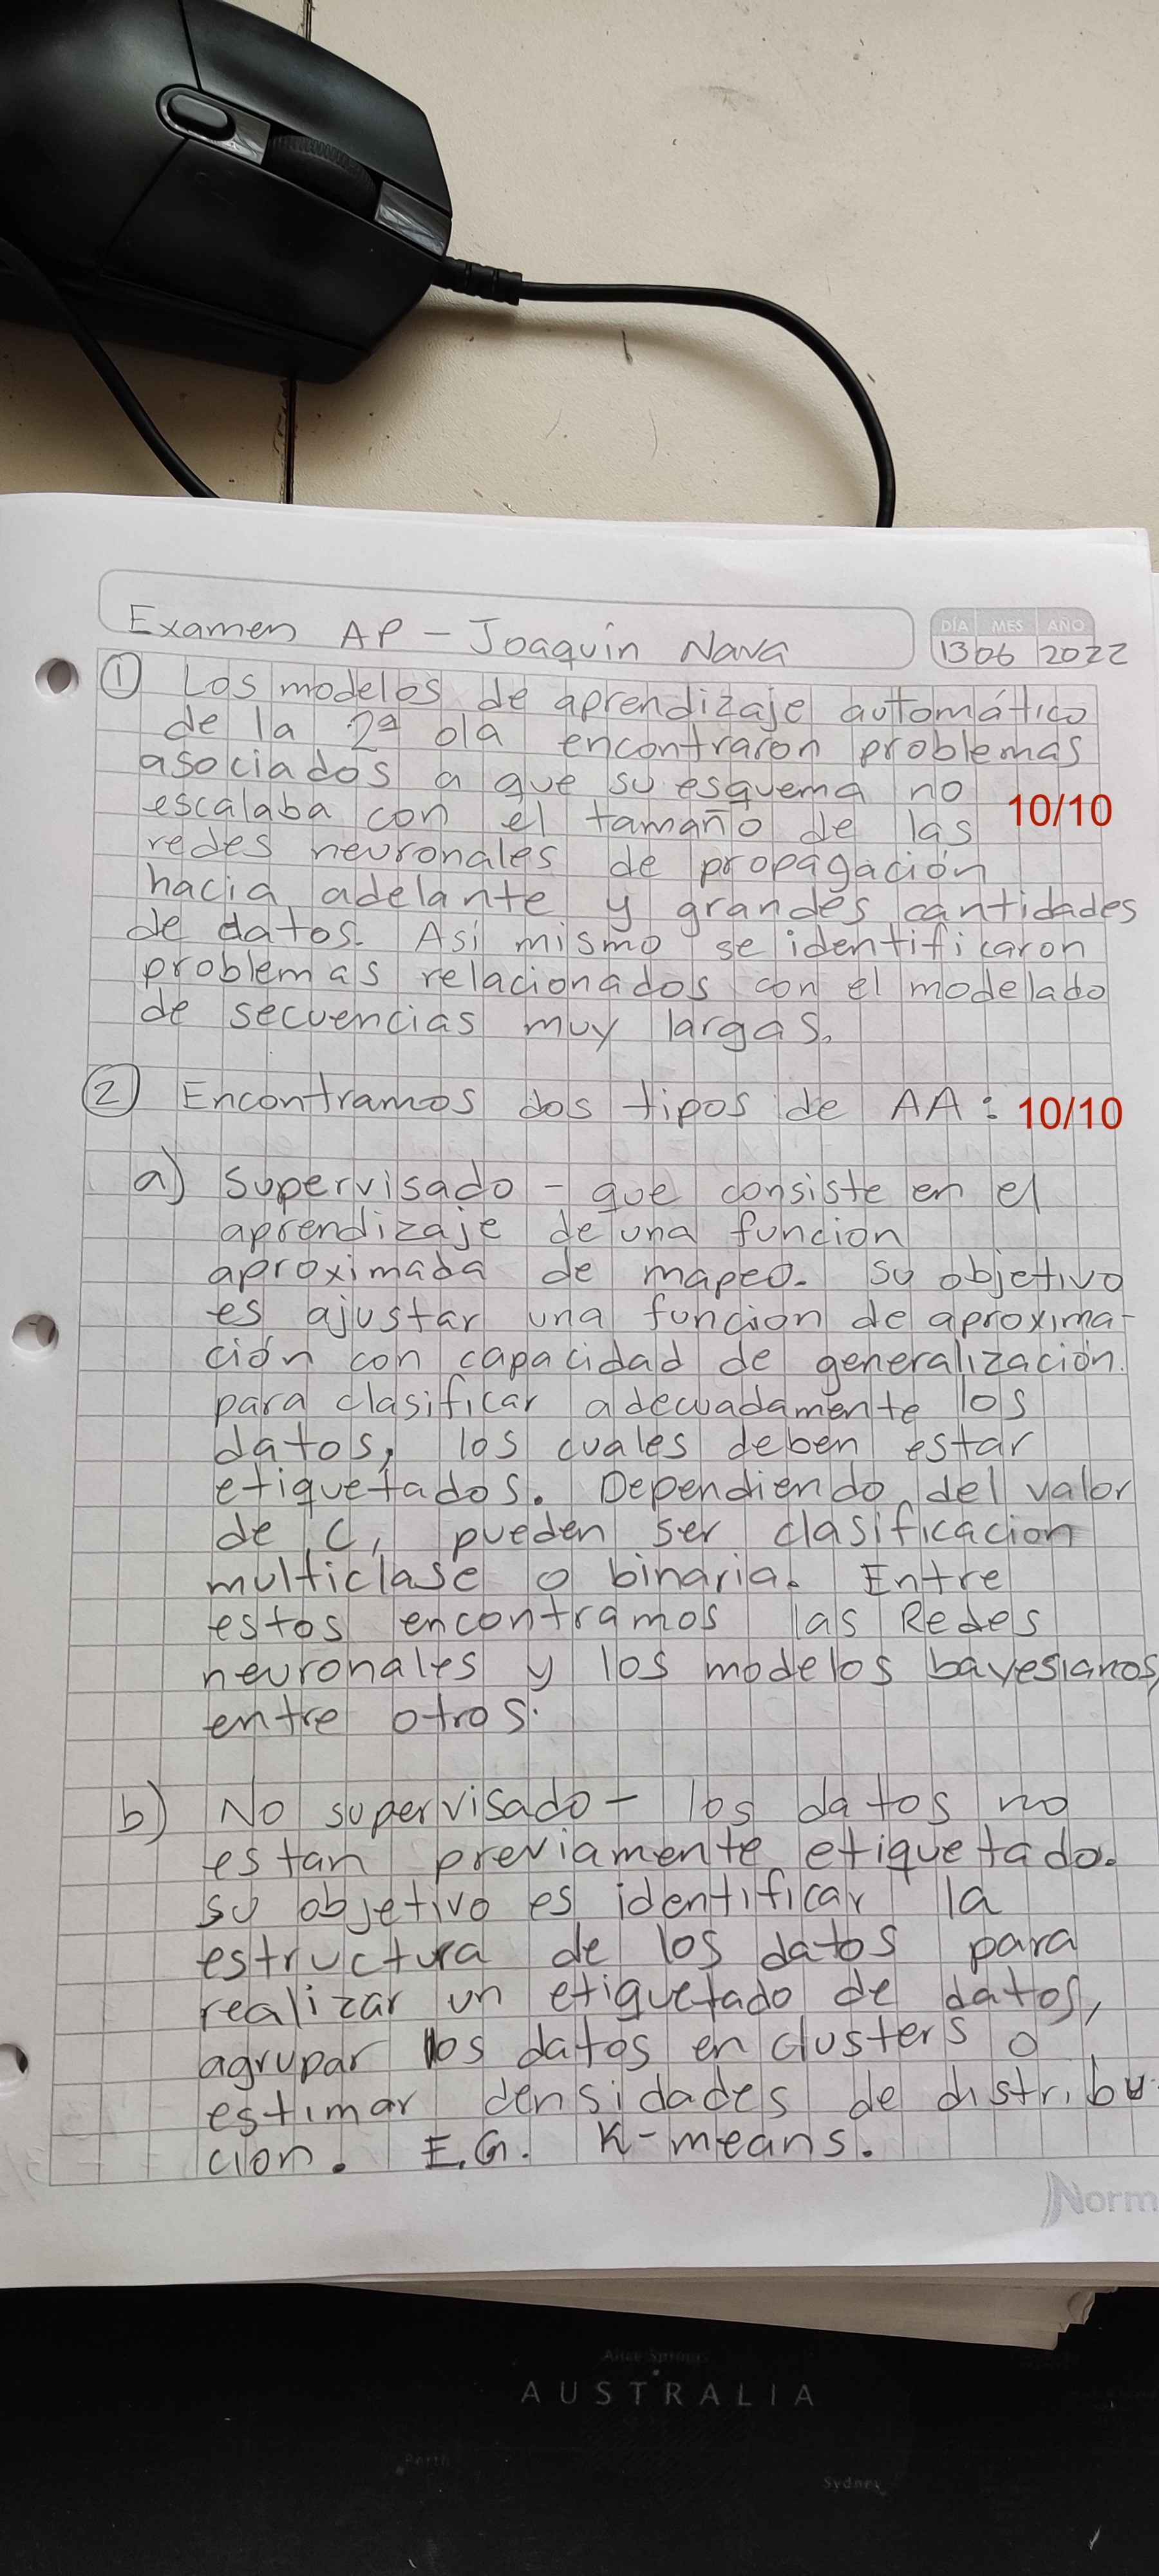 Examen AP - Joaquin Nava
DÍA MES AÑO
13 06 2022
① Los modelos de aprendizaje automático
de la 2ª ola encontraron problemas
asociados a que su esquema no
escalaba con el tamaño de las
10/10
redes neuronales de propagación
hacia adelante y grandes cantidades
de datos. Asi mismo se identificaron
problemas relacionados con el modelado
de secuencias muy largas.
② Encontramos dos tipos de AA: 10/10
a) Supervisado - que consiste en el
aprendizaje de una funcion
aproximada de mapeo. Su objetivo
es ajustar una función de aproxima-
ción con capacidad de generalización
para clasificar adecuadamente los
datos, los cuales deben estar
etiquetados. Dependiendo del valor
de C, pueden ser clasificacion
multiclase o binaria. Entre
estos encontramos las Redes
neuronales y los modelos bayesianos,
entre otros.
b) No supervisado - los datos no
estan previamente etiquetado.
su objetivo es identificar la
estructura de los datos para
realizar un etiquetado de datos,
agrupar los datos en clusters o
estimar densidades de distribu-
cion. E.G. K-means.
Norm
Alice Springs
AUSTRALIA
Perth
Sydney